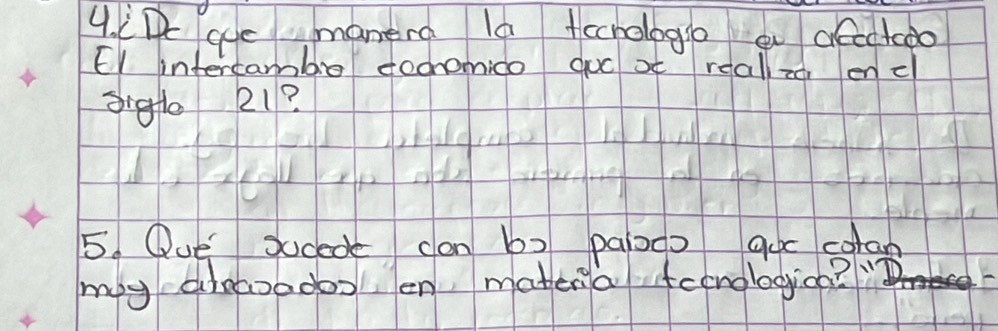 4. ¿De que manera la tecnologia a afectado
El intercambio economico que se realiza en el
siglo 21?
5. Qué sucede con los paises que estan
muy atrasados en materia tecnologica? "